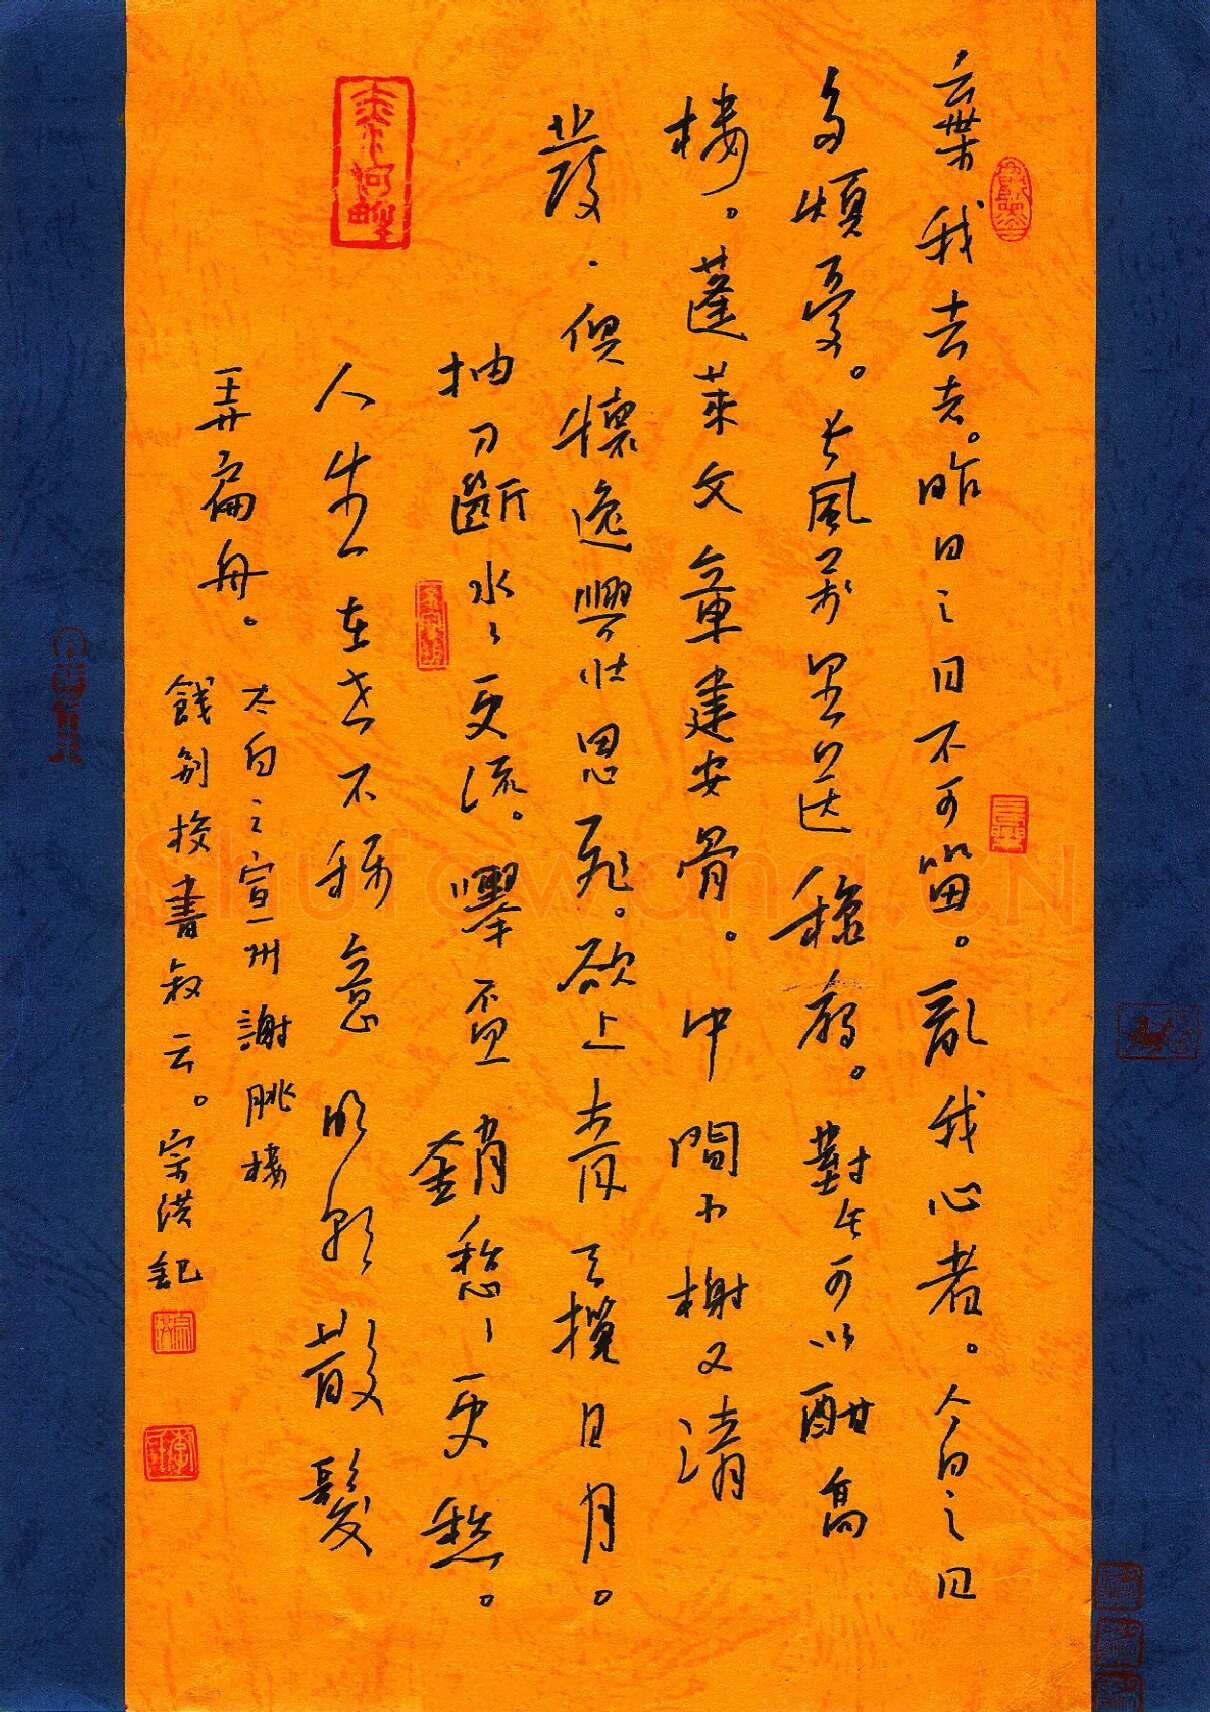 棄我去者。昨日之日不可留。亂我心者。今日之日
多煩憂。長風萬里送秋雁。對此可以酣高
樓。蓬萊文章建安骨。中間小榭又清
發。俱懷逸興壯思飛。欲上青天攬日月。
抽刀斷水水更流。舉盃銷愁愁更愁。
人生在世不稱意明朝散髮
弄扁舟。
太白之宣州謝朓樓
餞別校書叔云。宗洪記
Shufawang.CN